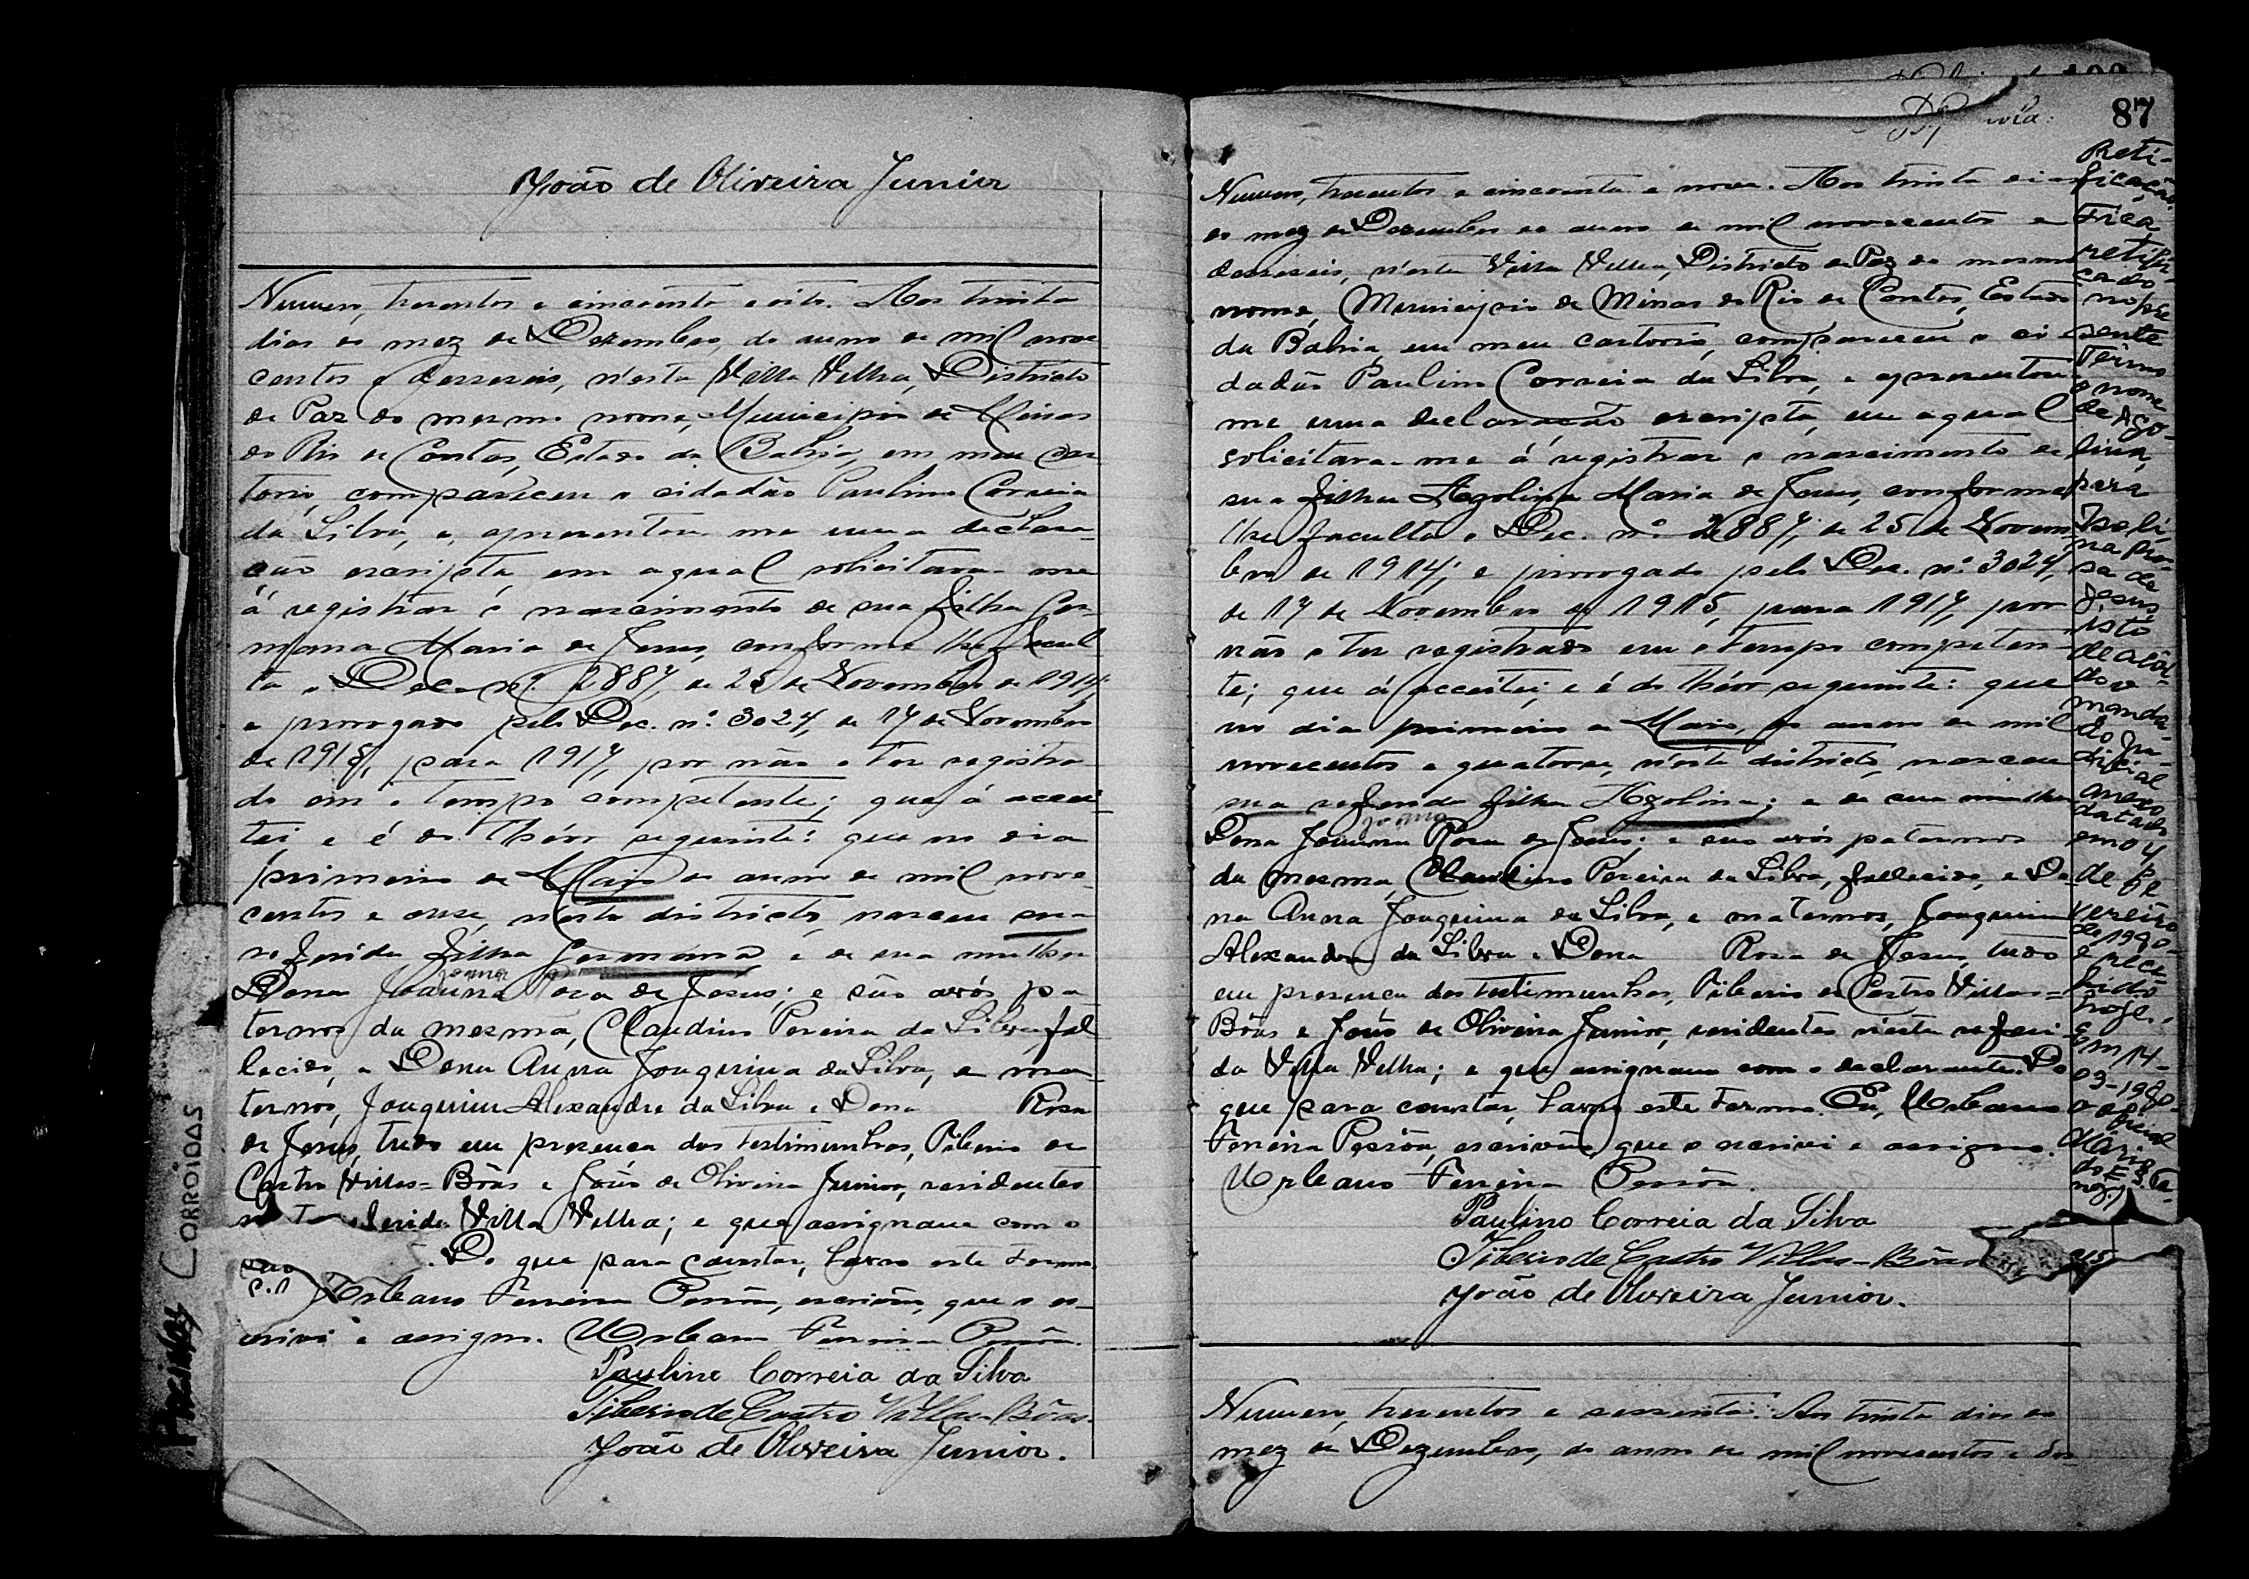 João de Oliveira Junior
Numero, tresentos e cincoenta e oito. Aos trinta
dias do mez de Dezembro, do anno de mil nove
centos e desesseis, n'esta Villa Velha, Districto
de Paz do mesmo nome, Municipio de Minas
do Rio de Contas, Estado da Bahia, em meu car
torio, compareceu o cidadão Paulino Correia
da Silva, e, apresentou-me uma declara-
ção escripta, em a qual solicitara-me
á registrar o nascimento de sua filha Ger
mana Maria de Jesus, conforme lhe facul
ta o Dec. nº. 2887, de 25 de Novembro de 1914;
e prorogado pelo Dec. nº. 3024, de 17 de Novembro
de 1915, para 1917, por não o ter registra
do em o tempo competente; que á accei-
tei e é do théor seguinte: que no dia
primeiro de Maio do anno de mil nove-
centos e onse, n'este districto, nasceu sua
referida filha Germana, e de sua mulher
Joanna
Dona Joanna Rosa de Jesus; e são avós pa
ternos da mesma, Claudino Pereira da Silva, fal
lecido, e Dona Anna Joaquina da Silva, e ma-
ternos, Joaquim Alexandre da Silva e Dona Rosa
de Jesus, tudo em presença das testimunhas, Tiberio de
Castro Villas-Bôas e João de Oliveira Junior, residentes
ferida Villa Velha; e que assignam com o
. Do que para constar, lavro este termo
Urbano Ferreira Pessôa, escrivão, que o es-
crivi e assigno. Urbano Ferreira Pessôa.
Paulino Correia da Silva
Tiberio de Castro Villas-Bôas.
João de Oliveira Junior.
Paginas CORROIDAS
87
Numero, tresentos e cincoenta e nove. Aos trinta dias
do mez de Dezembro do anno de mil novecentos e
desesseis, n'esta Villa Velha, Districto de Paz do mesmo
nome, Municipio de Minas do Rio de Contas, Estado
da Bahia, em meu cartorio, compareceu o ci-
dadão Paulino Correia da Silva, e apresentou-
me uma declaração escripta, em a qual
solicitara-me á registrar o nascimento de
sua filha Azolina Maria de Jesus, conforme
lhe faculta o Dec. nº 2887, de 25 de Novem
bro de 1914; e prorogado pelo Dec. nº. 3024,
de 17 de Novembro de 1915, para 1917, por
não o ter registrado em o tempo competen-
te; que á acceitei; e é do théor seguinte: que
no dia primeiro de Maio, do anno de mil
novecentos e quatorze, n'este districto, nasceu
sua referida filha Azolina; e de sua mulher
Joanna
Dona Joanna Rosa de Jesus; e sao avós paternos
da mesma, Claudino Pereira da Silva, fallecido, e Do-
na Anna Joaquina da Silva, e maternos, Joaquim
Alexandre da Silva e Dona Rosa de Jesus, tudo
em presença das testimunhas, Tiberio de Castro Villas-
Bôas e João de Oliveira Junior, residentes n'esta referi-
da Villa Velha; e que assignam com o declarante. Do
que para constar, lavro este termo. Eu, Urbano
Ferreira Pessôa, escrivão, que o escrivi e assigno.
Urbano Ferreira Pessôa.
Paulino Correia da Silva
Tiberio de Castro Villas-Bôas
João de Oliveira Junior.
Numero, tresentos e sessenta. Aos trinta dias do
mez de Dezembro, do anno de mil novecentos e des-
Reti-
ficação.
Fica
retifi-
cado
no pre
sente
Têrmo
o nome
de Azo-
lina,
para
Isoli-
na Ro-
sa de
Jesus
isto
de acôr-
do o
manda-
do ju-
dicial
anexo
datado
em 04
de Fe
vereiro
de
e rece-
bido
hoje.
Em 14-
03-
o oficial